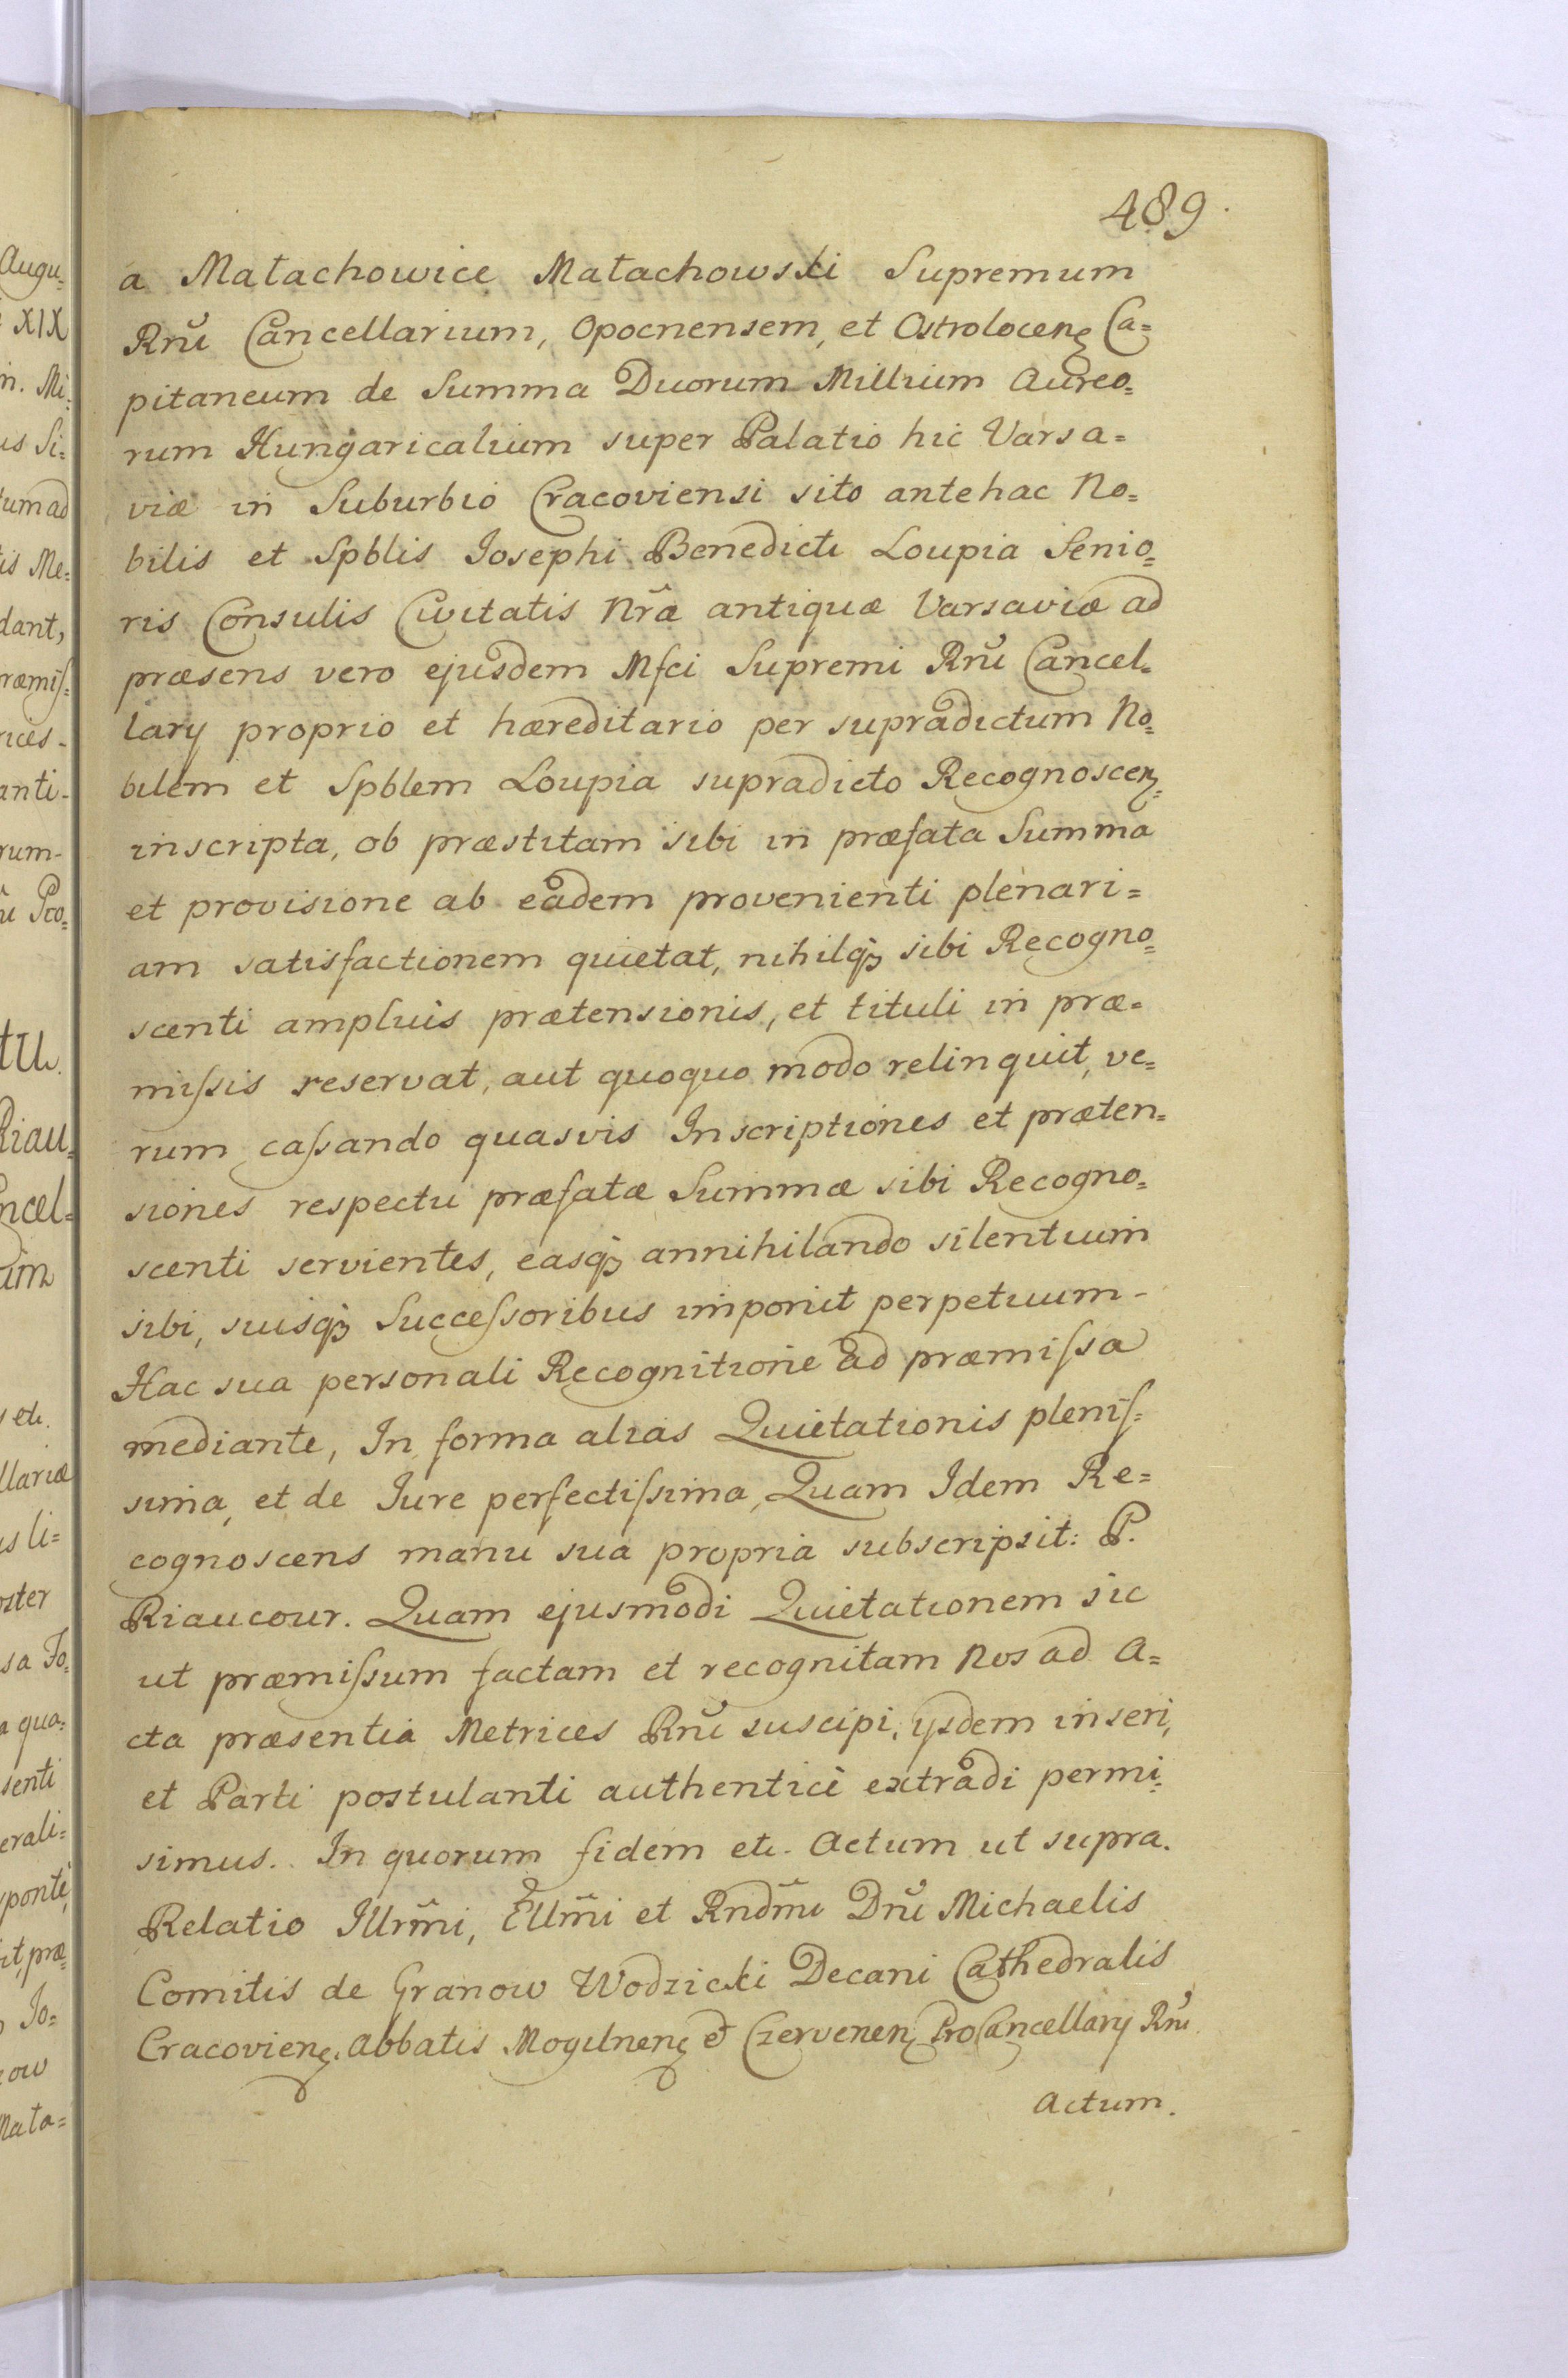 489.
a Małachowice Małachowski Supremum
Rnũ Cancellarium, Opocnensem, et Ostroloceñ Ca=
pitaneum de Summa Duorum Millium Aureo=
rum Hungaricalium super Palatio hic Varsa=
viæ in Suburbio Cracoviensi sito antehac No=
bilis et Spblis Josephi Benedicti Loupia Senio=
ris Consulis Civitatis Nrã antiquæ Varsaviæ ad
præsens vero ejusdem Mfci Supremi Rnũ Cancel=
lary proprio et hæreditario per supradictum No=
bilem et Spblem Loupia supradicto Recognoscen=
inscripta, ob præstitam sibi in præfata Summa
et provisione ab eadem provenienti plenari=
am satisfactionem quietat, nihilq₃ sibi Recogno=
scenti amplius prætensionis, et tituli in præ=
miſsis reservat, aut quoquo modo relinquit, ve=
rum caſsando quasvis Inscriptiones et præten=
siones respectu præfatæ Summæ sibi Recogno=
scenti servientes, easq₃ annihilando silentium
sibi, suisq₃ Succeſsoribus imponit perpetuum-
Hac sua personali Recognitione ad præmiſsa
mediante, In forma alias Quietationis pleniſ=
sima, et de Iure perfectiſsima, Quam Idem Re=
cognoscens manu sua propria subscripsit: P.
Riaucour. Quam ejusmodi Quietationem sic
ut præmiſsum factam et recognitam Nos ad A=
cta præsentia Metrices Rnũ suscipi, ijsdem inseri,
et Parti postulanti authentice extradi permi=
simus. In quorum fidem etc. Actum ut supra.
Relatio Illrm̃i, Ellm̃i et Rndm̃i Dnũ Michaelis
Comitis de Granow Wodzicki Decani Cathedralis
Cracovienę. Abbatis Mogilnenę et Czervenenę ProCancellary Rnũ
Actum.
Augu=
XIX
n. Mi=
us Si=
tum ad
tis Me=
dant,
ræmiſ=
rices-
anti-
rum-
ũ Pro=
tu.
Riau=
ncel=
um
s etc.
llariæ
us li=
oster
sa Jo=
a qua=
senti
erali=
ponte,
it, præ=
Jo=
ow
Mała=